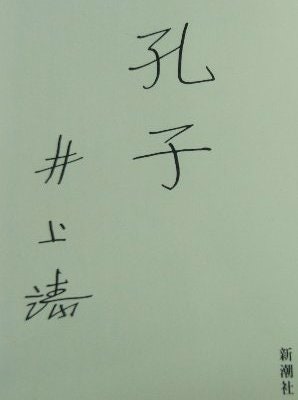 孔子
井上靖
新潮社